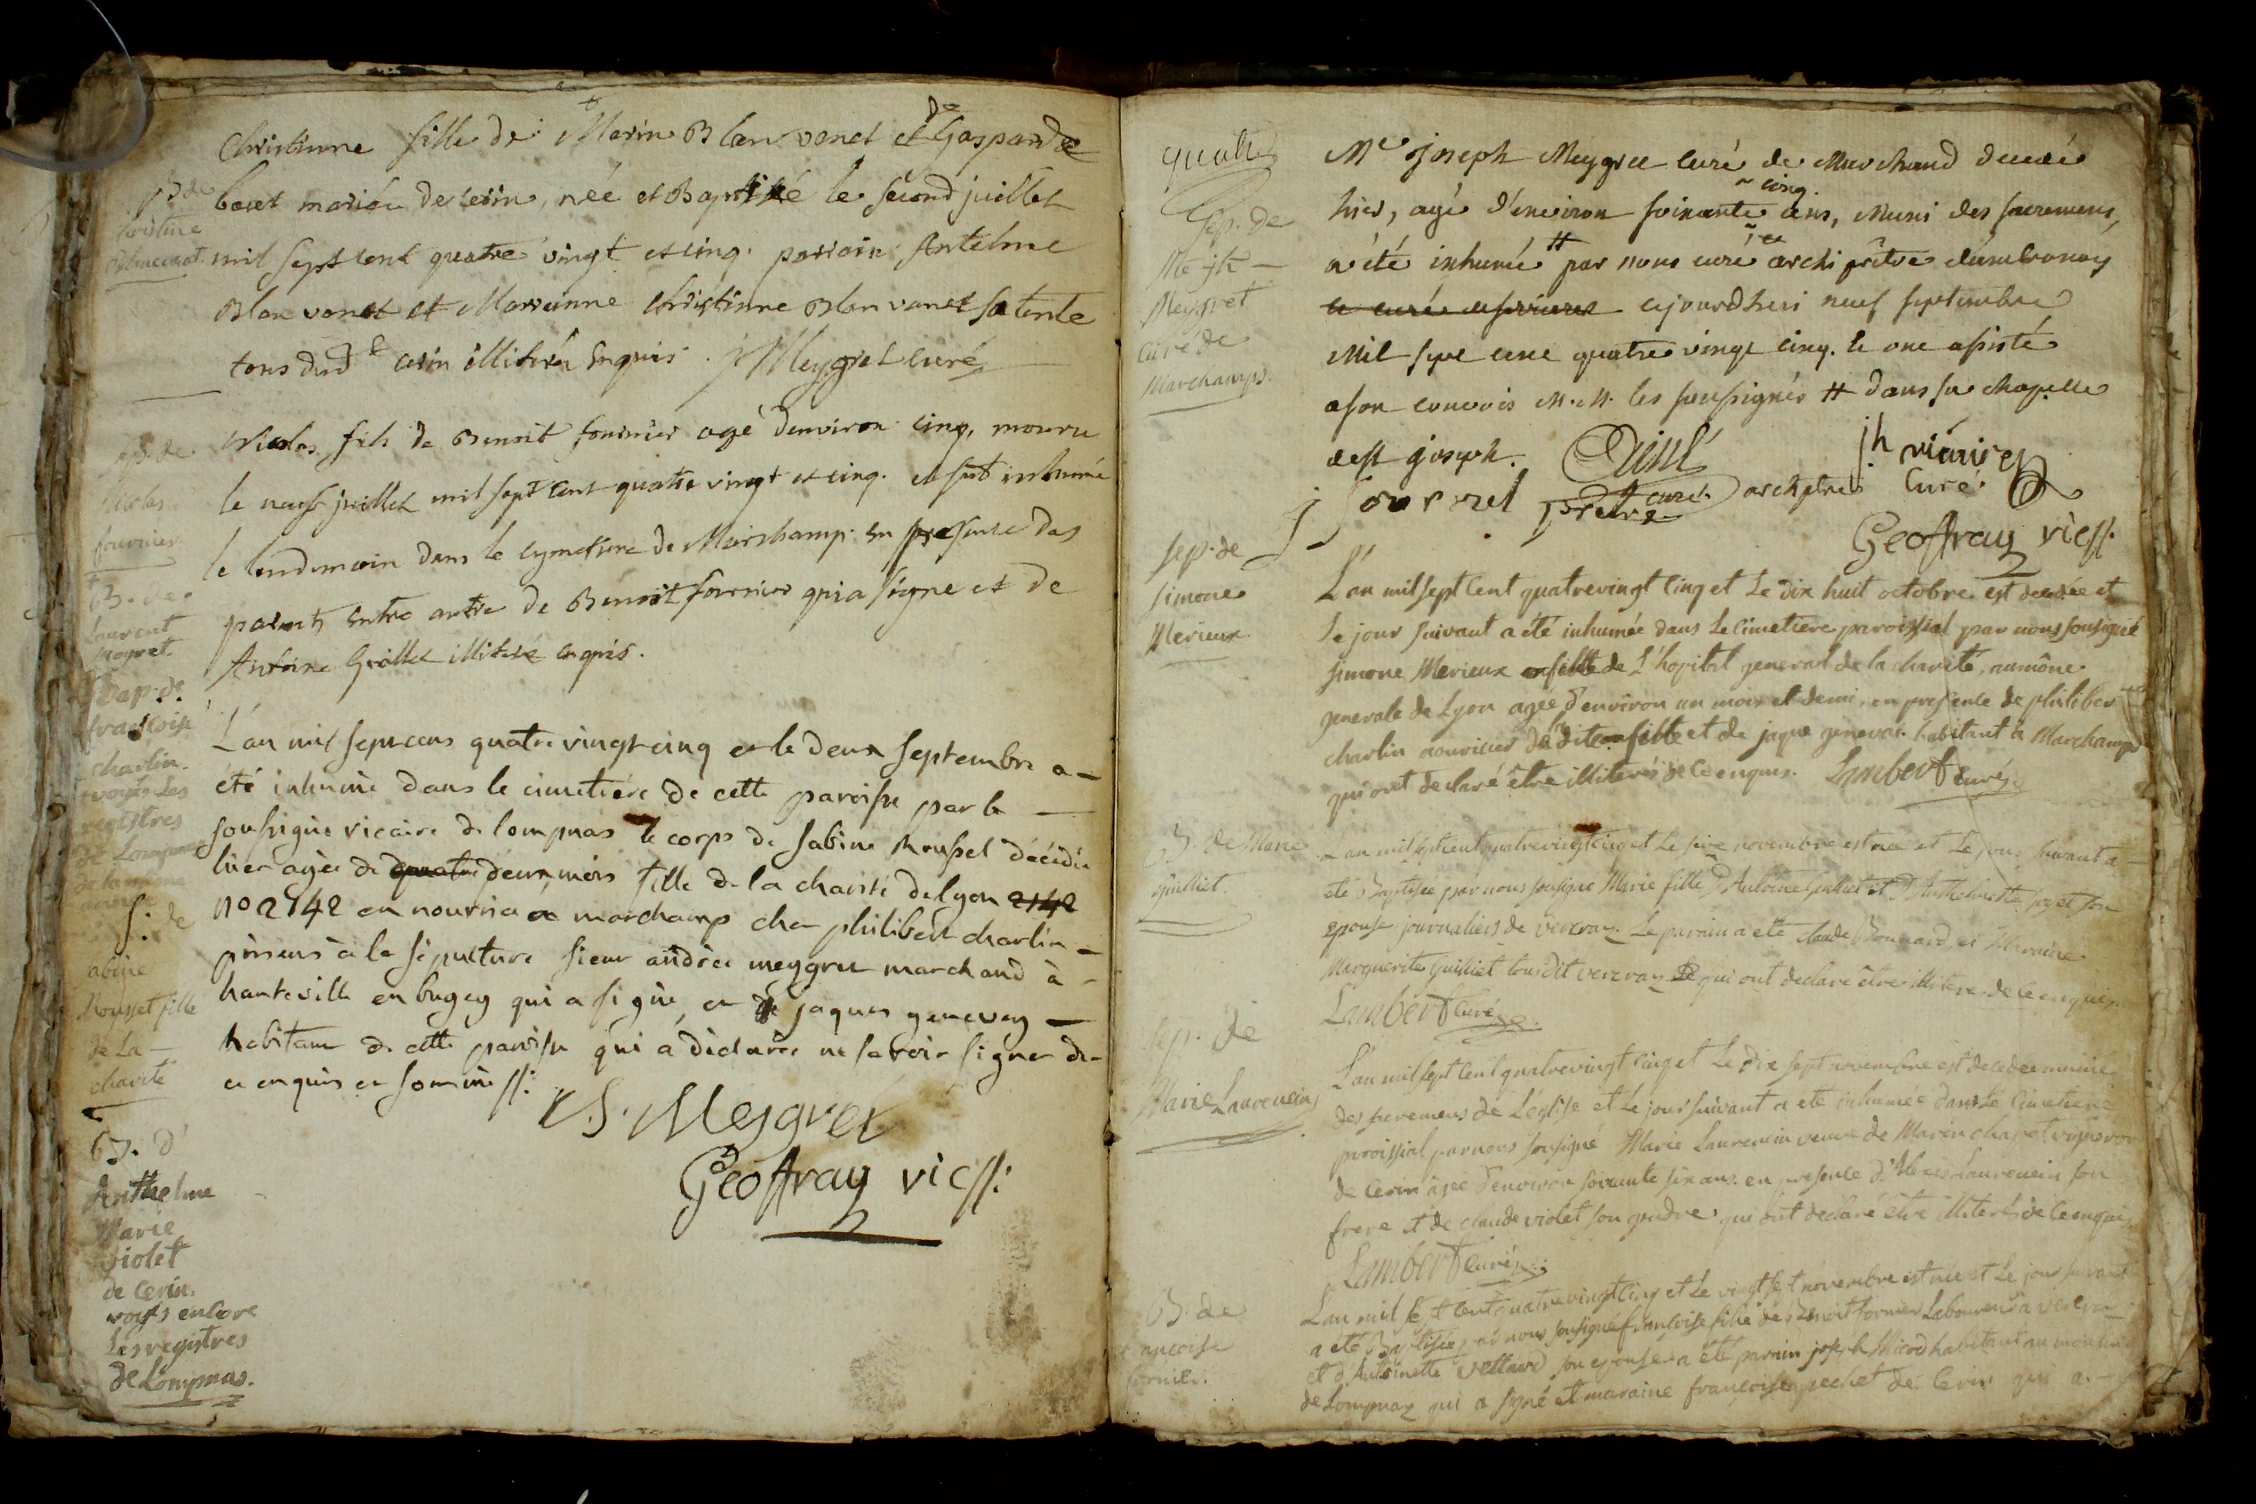 B. de
Christine
Blanvenet.
Christinne fille de Marin Blanvenet et de Gasparde
boset mariés de cerin, née et Baptisée le second juillet
mil sept cent quatre vingt et cinq. parrain Antelme
Blanvenet et Marianne Christinne Blanvenet sa tente
tous dud. cerin illiterés enquis. j Meygret curé
sep. de
Nicolas
fournier
Nicolas fils de Benoit fournier agé denviron cinq, mouru
le neuf juillet mil sept cent quatre vingt et cinq. et fut inhumé
le lendemain dans le cymetiere de Marchamp. en presence des
parents entre autre de Benoit fournier qui a signe et de
Antoine Grollet illiteré enquis.
B. de
Laurent
Meyret.
Bap. de
françoise
charlin.
voyés Les
registres
de Lompnas
de la même
année
S. de
sabine
Rousset fille
de La
charité
L'an mil sept cens quatre vingt cinq et le deux septembre a
été inhumé dans le cimetière de cette paroisse par le
soussigné vicaire de lompnas le corps de sabine Rousset décédée
hier agée de quatre deux mois fille de la charité de lyon 2142
no 2142 en nourrice a marchamp chez philibert charlin
présens à la sépulture sieur andréa meygret marchand à
hauteville en bugey qui a signé, et de jaques genevay
habitant de cette paroisse qui a déclaré ne savoir signer de
ce enquis et sommé ss:
A. S. Meygret
Geoffray vic ss:
B. d'
Anthelme
Marie
violet
de cerin.
voyés encore
Les registres
de Lompnas.
quatre
Sep. de
Me jh
Meygret
curé de
Marchamps.
Me joseph Meygret curé de Marchand decedé
hier, agé d'environ soixante cinq ans, muni des sacremens,
a été inhumé # par nous curé archiprêtre d'ambronay
cejourdhui neuf septembre
mil sept cent quatre vingt cinq. et ont assisté
a son convois M.M. les soussignés # dans sa chapelle
de st joseph.
curé archiptre jh viévisey curé
j Jouvrel prêtre
Geoffray vic ss.
sep. de
simone
Merieux
L'an mil sept cent quatrevingt cinq et Le dix huit octobre est decedée et
Le jour suivant a été inhumée dans Le cimetiere paroissial par nous soussigné
simone Merieux fille de L'hopital general de la charité, aumône
generale de Lyon agée d'environ un mois et demi, en presence de philibert
charlin nouricier de Ladite fille et de jaque genevai habitant à Marchamp
qui ont declaré être illiterés de ce enquis. Lambert curé.
B. de Marie
guilliet.
L'an mil sept cent quatrevingt cinq et Le seize novembre est née et Le jour suivant a
eté Baptisée par nous soussigné Marie fille d'Antoine Guilliet et d'Anthelmette son
epouse journaliers de vercray. Le parain a été claude Bonnard et Maraine
Marguerite guilliet tous dit vercray qui ont declaré être illiteré de ce enquis
Lambert curé.
sep. de
Marie Laurencin
L'an mil sept cent quatrevingt cinq et Le dix sept novembre est decedée munie
des sacremens de L'église et Le jour suivant a eté inhumée dans Le cimetiere
paroissial par nous soussigné Marie Laurencin veuve de Marin chapet vigneron
de cerin agée d'environ soixante six ans. en presence d'Alexis Laurencin son
frere et de claude violet son gendre qui ont declaré être illiterés de ce enquis
Lambert curé.
B. de
françoise
fornier.
L'an mil sept cent quatrevingt cinq et Le vingt sept novembre est née et Le jour suivant
a été Baptisée par nous soussigné françoise fille de Benoit fornier Laboureur à vercra
et d'Antoinette vettard son epouse a été parain joseph Micod habitant au
de Lompnaz qui a signé et maraine françoise pechet de Cerin qui a